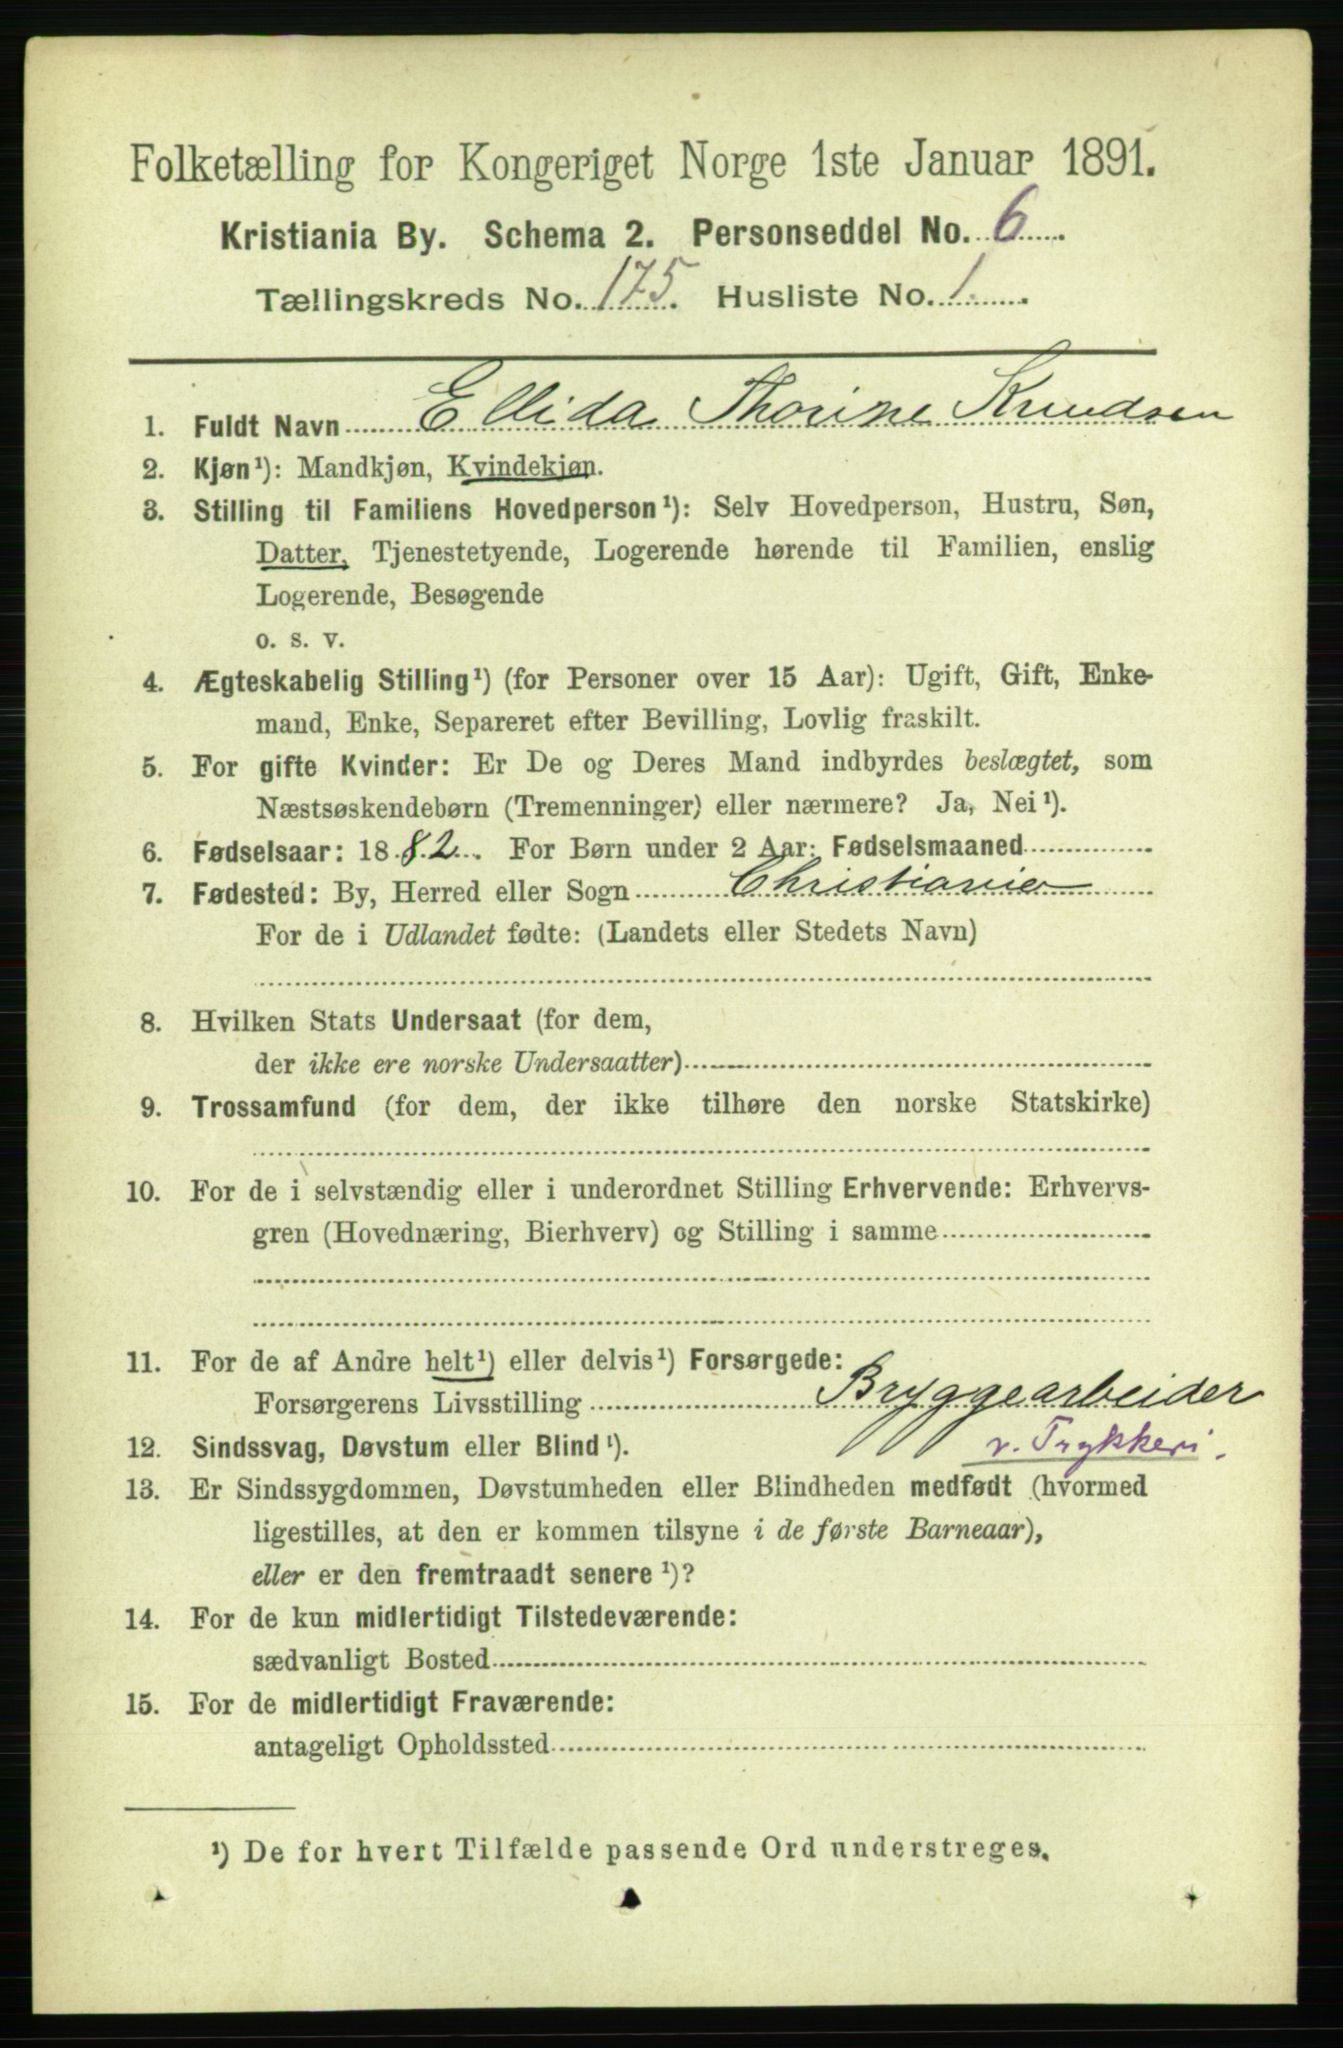 Folketælling for Kongeriget Norge 1ste Januar 1891.
Kristiania By. Schema 2. Personseddel No. 6
Tællingskreds No. 175. Husliste No. 1.
1. Fuldt Navn Ellida Thorine Knudsen
2. Kjøn¹): Mandkjøn, Kvindekjøn.
3. Stilling til Familiens Hovedperson¹): Selv Hovedperson, Hustru, Søn,
Datter, Tjenestetyende, Logerende hørende til Familien, enslig
Logerende, Besøgende
o. s. v.
4. Ægteskabelig Stilling¹) (for Personer over 15 Aar): Ugift, Gift, Enke-
mand, Enke, Separeret efter Bevilling, Lovlig fraskilt.
5. For gifte Kvinder: Er De og Deres Mand indbyrdes beslægtet, som
Næstsøskendebørn (Tremenninger) eller nærmere? Ja, Nei¹).
6. Fødselsaar: 1882. For Børn under 2 Aar: Fødselsmaaned
7. Fødested: By, Herred eller Sogn Christiania
For de i Udlandet fødte: (Landets eller Stedets Navn)
8. Hvilken Stats Undersaat (for dem,
der ikke ere norske Undersaatter)
9. Trossamfund (for dem, der ikke tilhøre den norske Statskirke)
10. For de i selvstændig eller i underordnet Stilling Erhvervende: Erhvervs-
gren (Hovednæring, Bierhverv) og Stilling i samme
11. For de af Andre helt¹) eller delvis¹) Forsørgede:
Forsørgerens Livsstilling Bryggearbeider
12. Sindssvag, Døvstum eller Blind¹). v. Trykkeri.
13. Er Sindssygdommen, Døvstumheden eller Blindheden medfødt (hvormed
ligestilles, at den er kommen tilsyne i de første Barneaar),
eller er den fremtraadt senere¹)?
14. For de kun midlertidigt Tilstedeværende:
sædvanligt Bosted
15. For de midlertidigt Fraværende:
antageligt Opholdssted
¹) De for hvert Tilfælde passende Ord understreges.